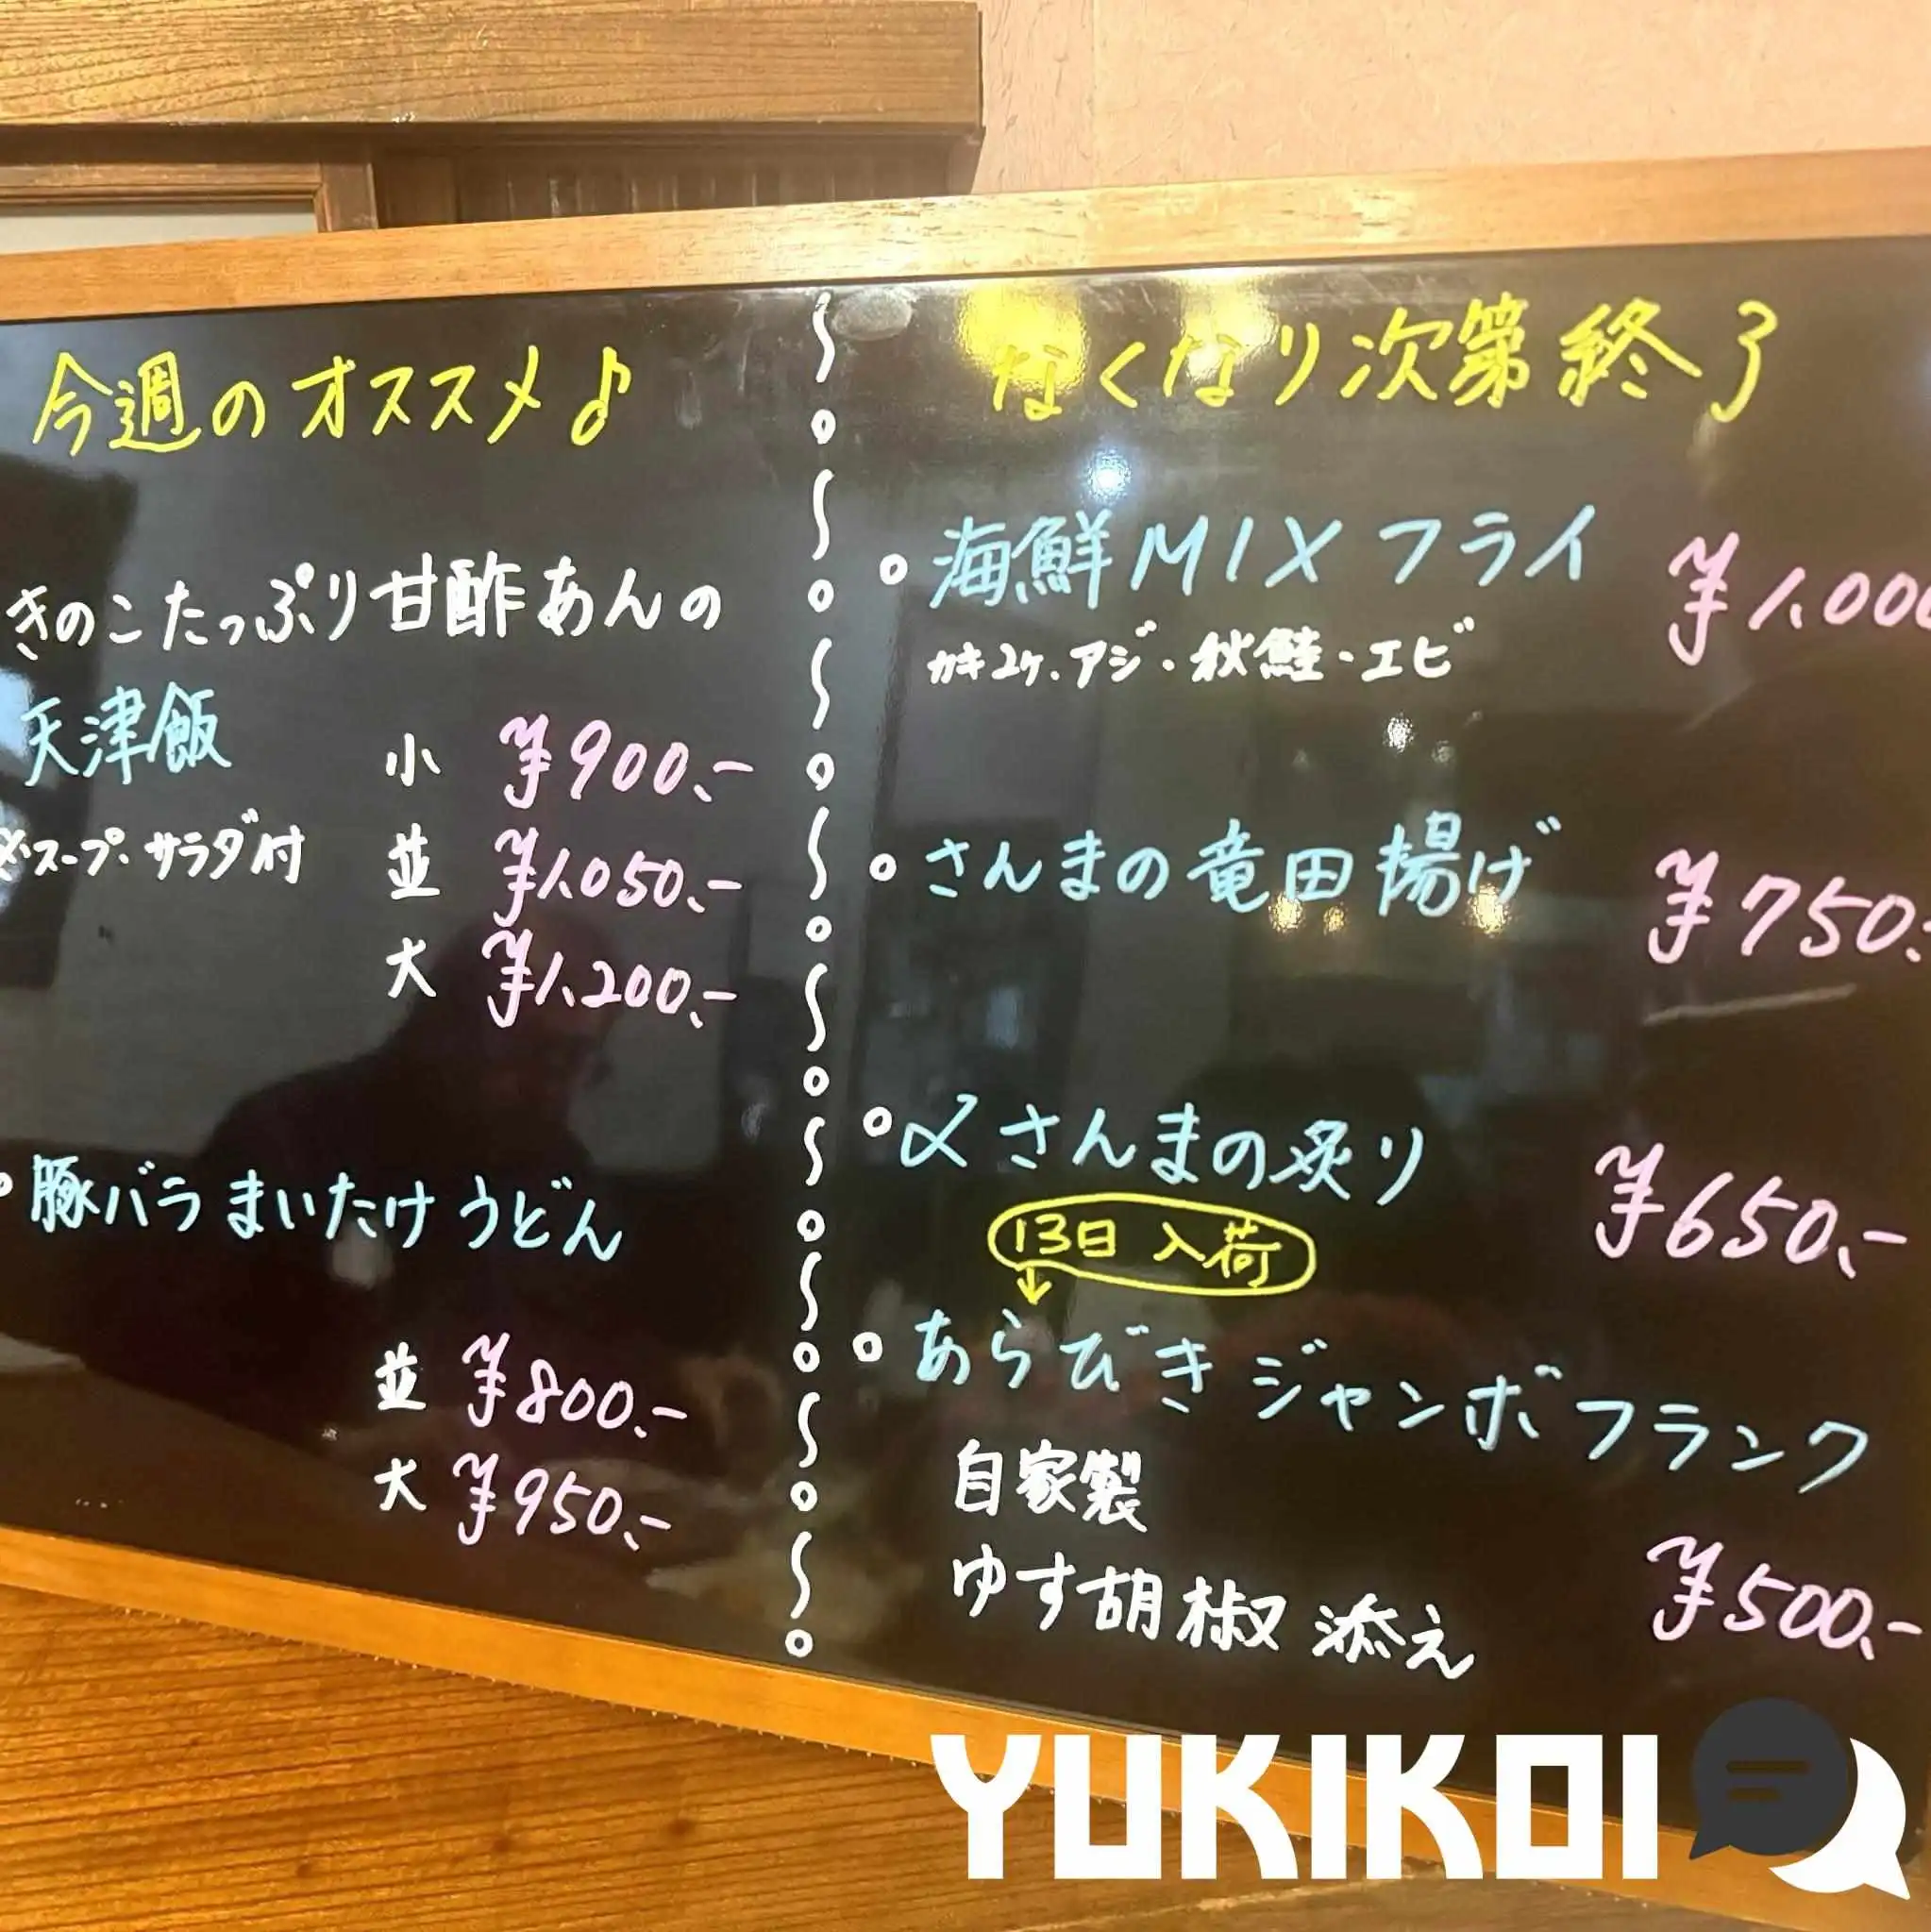 今週のオススメ♪
きのこたっぷり甘酢あんの
天津飯
小 ¥900.-
※スープ・サラダ付 並 ¥1,050.-
大 ¥1,200.-
豚バラまいたけうどん
並 ¥800.-
大 ¥950.-
なくなり次第終了
海鮮MIXフライ ¥1,000
カキ2ヶ・アジ・秋鮭・エビ
さんまの竜田揚げ ¥750.-
〆さんまの炙り ¥650.-
13日入荷
あらびきジャンボフランク
自家製
ゆず胡椒添え ¥500.-
YUKIKOI